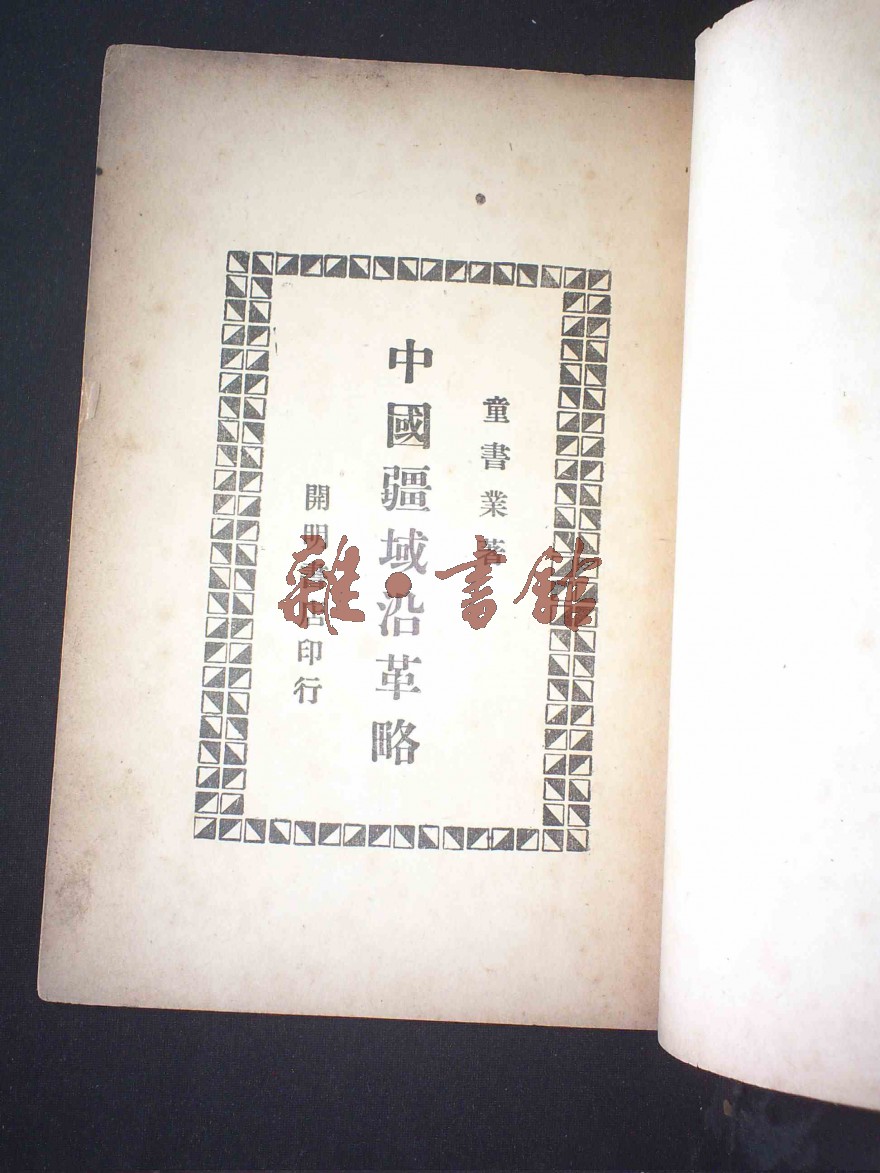 童書業著
中國疆域沿革略
開明書店印行
雜·書館